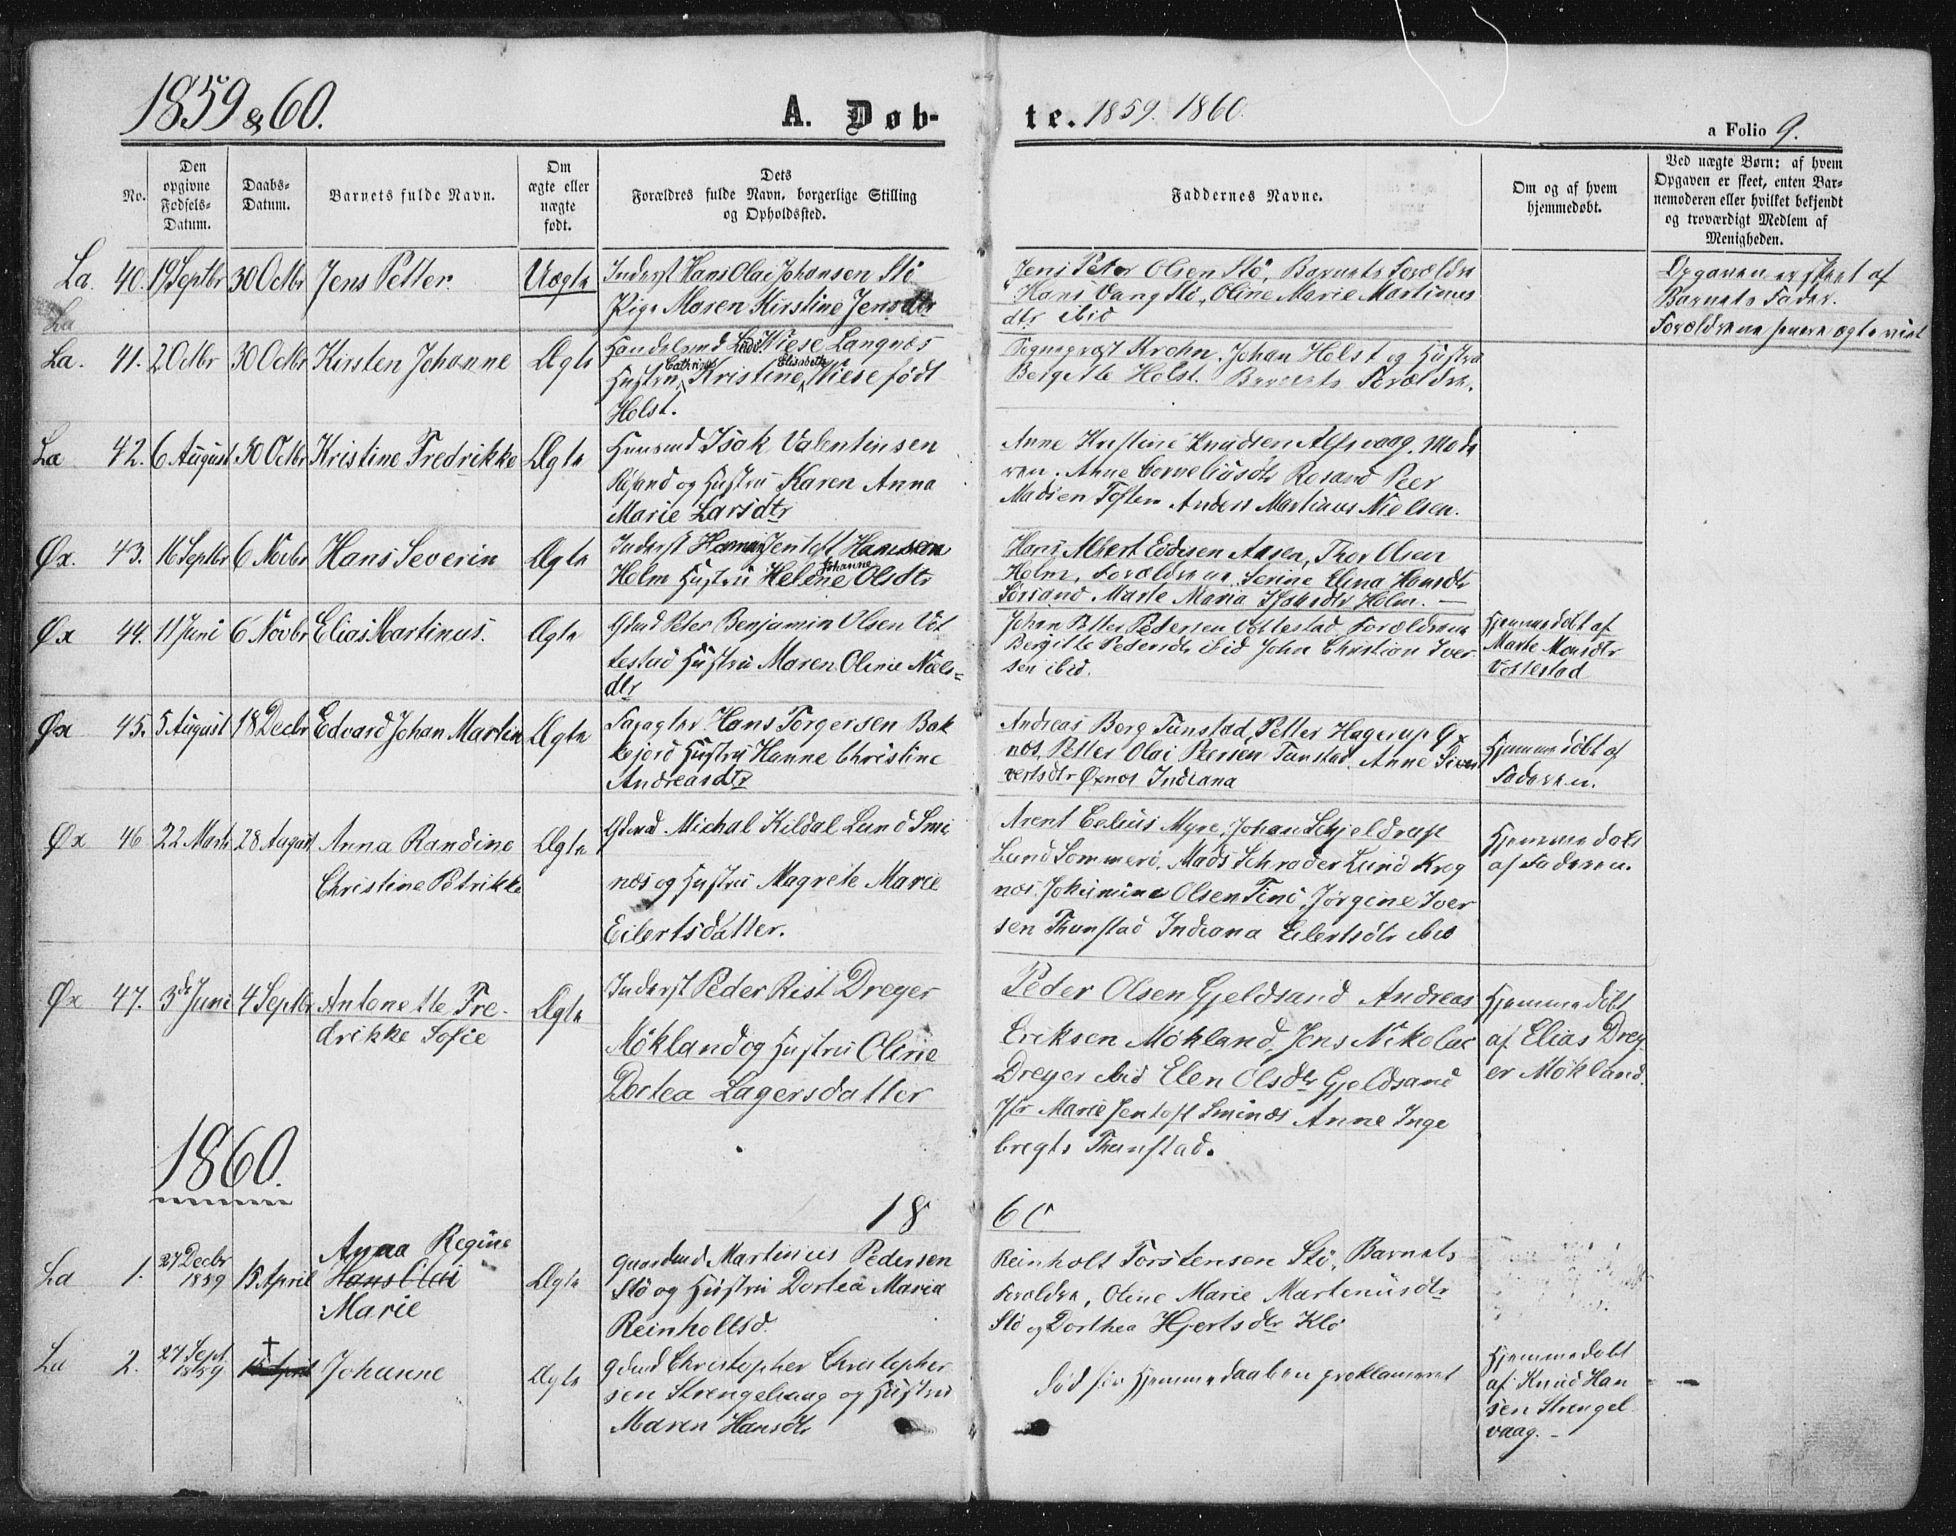 1859 & 60.
A. Døb-
te. 1859. 1860.
a Folio 9.
No.
Den opgivne Fødsels-Datum.
Daabs-Datum.
Barnets fulde Navn.
Om ægte eller uægte født.
Dets Forældres fulde Navn, borgerlige Stilling og Opholdssted.
Faddernes Navne.
Om og af hvem hjemmedøbt.
Ved uægte Børn: af hvem Opgaven er skeet, enten Barnemoderen eller hvilket bekjendt og troværdigt Medlem af Menigheden.
La. 40. 19 Septbr 30 Octbr Jens Petter. Uægte
Inderst Hans Olai Johansen Stö
Pige Maren Kirstine Jensdtr
Jens Peter Olsen Stö, Barnets Forældre
Hans Vang Stö, Oline Marie Martinus
dtr ibid
Opgaven er skeet af
Barnets Fader.
La
La. 41. 2 Octbr 30 Octbr Kirsten Johanne Ægte
Handelsmd Wiese Langnæs
Hustru Cathrine Kristine Elisabeth Wiese født
Holst.
Krohn, Johan Holst og Hustru
Bergitte Holst. Barnets Forældre.
La 42. 6 August 30 Octbr Kristine Fredrikke Ægte
Huusmd Isak Valentinsen
og Hustru Karen Anna
Marie Larsdtr
Anne Kristine Knudsen Alfsvaag. Mode
ren. Anne Corneliusdtr Rosand Peer
Madsen Toften Anders Martinus Nielsen.
Øx. 43. 16 Septbr 6 Novbr Hans Severin Ægte
Inderst Jentoft Hansen
Holm Hustru Helene Johanne Olsdtr
Hans Albert Aasen, Thor Olsen
Holm, Forældrene, Serine Elina Hansdtr
Marte Maria Holm.
Øx 44. 11 Juni 6 Novbr Elias Martinus. Ægte
Gdmd Peter Benjamin Olsen Vot
testad Hustru Maren Oline Noels=
dtr
Johan Petter Pedersen Vottestad Forældrene
Bergitte Pedersdtr ibid John Christian Iver
sen ibid.
Hjemmedöbt af
Marte Monsdtr
Vottestad
Øx 45. 5 August 18 Decbr Edvard Johan Martin Ægte
Hans Torgersen Bak
kejord Hustru Hanne Christine
Andreasdtr
Andreas Berg Tunstad, Petter Hagerup Øx
næs, Petter Olai Peersen Tunstad. Anne Siv
vertsdtr Øxnæs Indiana
Hjemmedöbt af
Faderen.
Øx 46 22 Marts 28 August Anna Randine Ægte
Christine Petrikke
Gdmd Michal Kildal Lund Smi
næs og Hustru Magrete Marie
Eilertsdatter.
Arent Celius Myre, Johan Schjelderup
Lund Sommerö, Mads Schrøder Lund Kreg
næs, Johimine Olsen Tini, Jørgine Iver
sen Thunstad Indiana Eilertsdtr ibid
Hjemmedöbt
af Faderen.
Øx 47. 3de Juni 4 Septbr Antonette Fre- Ægte
drikke Sofie
Inderst Peder Rist Dreyer
Mökland og Hustru Oline
Dortea Lagersdatter
Peder Olsen Gjeldsand Andreas
Eriksen Mökland, Jens Nikolai
Dreyer ibid Elen Olsdtr Gjeldsand
Jfr Marie Jentoft Sminæs Anne Inge
bregts Thunstad.
Hjemmedöbt
af Elias Drey-
er Mökland.
1860.
18 60
La 1. 27 Decbr 1859 15 April Anna Regine Hans Olai Marie Ægte
Martinus Pedersen
Stö og Hustru Dortea Maria
Reinholtsd.
Reinholt Torstensen Stö, Barnets
Forældre, Oline Marie Martinusdtr
Stö og Dorthea Hjertsdtr Klö
La 2. 27 Sept. 1859 † 15 April Johanne Ægte
Gdmd Christopher Christopher
sen Strengelvaag og Hustru
Maren Hansdtr
Död för Hjemmedaaben proklameret
Hjemmedöbt
af Knud Han
sen Strengel
vaag.